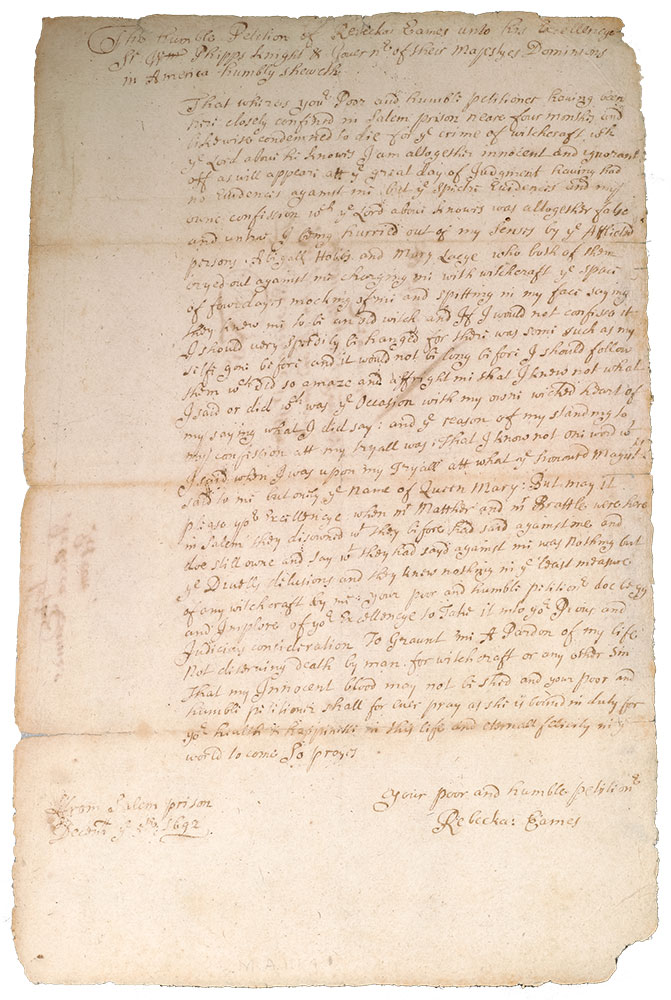 The Humble Petition of Rebecka: Eames unto his Excellencye
Sr Wm Phipps Knight & Governr of their Majestyes Dominions
in America humbly sheweth
That wheras your Poor and humble petitioner having been
here closely confined in Salem prison neare four monthes and
likewise condemned to die for ye crime of witchcraft wch
ye Lord above he knowes I am altogether innocent and ignorant
off as will appeare att ye great day of Judgment having had
no Evidences against me but ye Spectre Evidences and my
owne confession wch ye Lord above knowes was altogether false
and untrue I being hurried out of my Senses by ye Afflicted
persons Abigall Hobbs and Mary Lacye who both of them
cryed out against me charging me with witchcraft ye space
of four dayes mocking of me and spitting in my face saying
they knew me to be an old witch and If I would not confesse it
I should very speedily be hanged for there was some such as my
selfe gone before and it would not be long before I should follow
them wch did so amaze and affright me that I knew not what
I said or did wch was ye Occasion with my owne wicked heart of
my saying what I did say: and ye reason of my standing to
my confession att my tryall was: That I know not one word wt
I said when I was upon my Tryall att what ye honourd Majistr
said to me but only ye Name of Queen Mary: But may it
please yor Excellencye when mr Matther and mr Brattle were here
in Salem they disowned wt they before had said against me and
doe still owne and say wt they had sayd against me was Nothing but
ye Divells delusions and they knew nothing in ye least measure
of any witchcraft by me: your poor and humble petitionr doe begg
and Implore of yor Excellencye to Take it into yor Pious and
Judicious consideration To Graunt me A Pardon of my life
Not deserving death by man for witchcraft or any other Sin
That my Innocent blood may not be shed and your poor and
humble petitioner shall for ever pray as she is bound in duty for
yor health & happinesse in this life and eternall felicity in ye
world to come So prayes
Your poor and humble petitionr
From Salem prison
Rebecka: Eames
Decembr ye 5th 1692